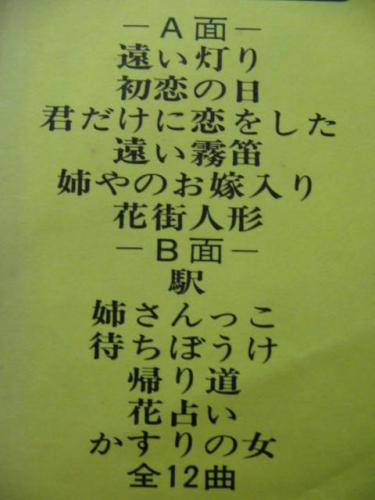 －A面－
遠い灯り
初恋の日
君だけに恋をした
遠い霧笛
姉やのお嫁入り
花街人形
－B面－
駅
姉さんっこ
待ちぼうけ
帰り道
花占い
かすりの女
全12曲